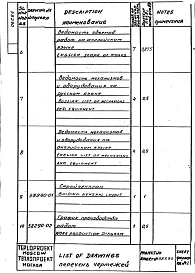 DESCRIPTION
НАИМЕНОВАНИЕ
NOTES
ПРИМЕЧАНИЕ
6
Ведомость объемов
работ на английском
языке
ENGLISH SCOPE OF WORKS
7
Ведомость механизмов
и оборудования на
русском языке
RUSSIAN LIST OF MECHANISMS
AND EQUIPMENT
4
0,5
8
Ведомость механизмов
и оборудования на
английском языке
ENGLISH LIST OF MECHANISMS
AND EQUIPMENT
4
0,5
9
58290-01
Стройгенплан
BUILDING GENERAL LAYOUT
10
58290-02
График производства
работ
WORK PRODUCTION DIAGRAM
1
0,5
TEPLOPROEKT
MOSCOW
ТЕПЛОПРОЕКТ
МОСКВА
LIST OF DRAWINGS
перечень чертежей